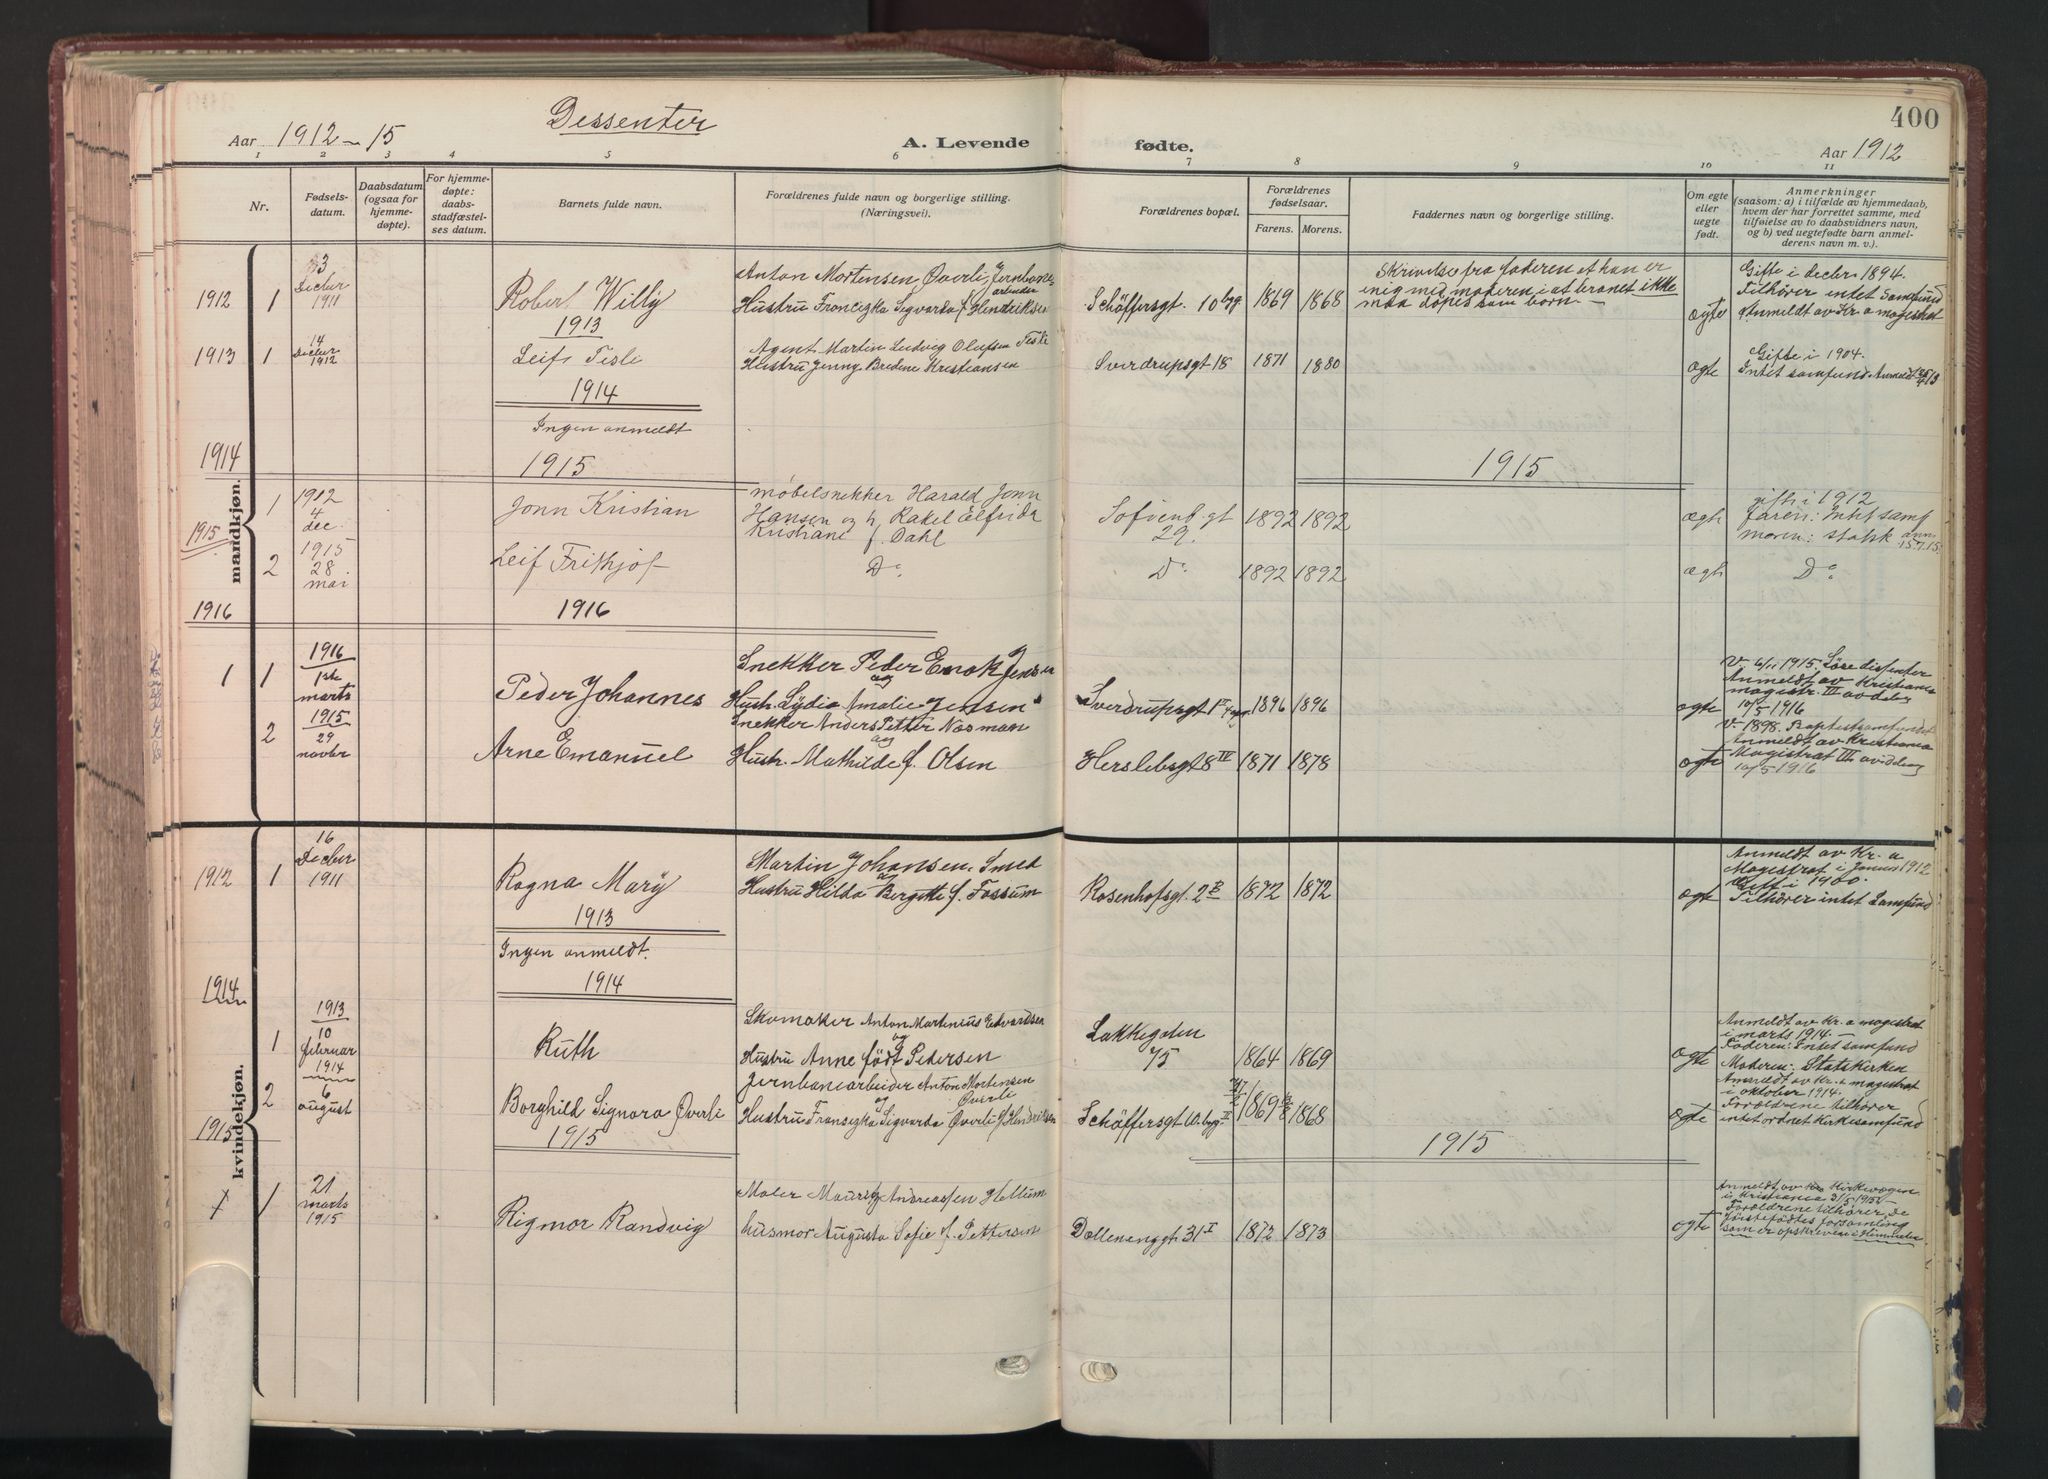 400
Aar 1912-15
Dessenter
A. Levende
fødte.
Aar 1912
1 2 3 4 5 6 7 8 9 10 11
Nr.
Fødsels-
datum.
Daabsdatum
(ogsaa for
hjemme-
døpte).
For hjemme-
døpte:
daabs-
stadfæstel-
ses datum.
Barnets fulde navn.
Forældrenes fulde navn og borgerlige stilling.
(Næringsvei).
Forældrenes bopæl.
Forældrenes
fødselsaar.
Farens. Morens.
Faddernes navn og borgerlige stilling.
Om egte
eller
uegte
født.
Anmerkninger
(saasom: a) i tilfælde av hjemmedaab,
hvem der har forrettet samme, med
tilføielse av to daabsvidners navn,
og b) ved uegtefødte barn anmel-
derens navn m. v.).
mandkjøn.
1912 1
3
Decbr
1911
Robert Willy
Anton Mortensen Øverli, Jernbane-
arbeider
Hustru Franciska Sigvarda f. Hendriksen
Schäffersgt. 10 byg
1869 1868
Skrivelse fra faderen at han er
enig med moderen i at barnet ikke
maa döpes som barn
ægte
Gifte i decbr 1894.
Tilhører intet Samfund
Anmeldt av Kr. a magistrat
1913
1913 1
14
Decbr
1912
Leif Tesli
Agent Martin Ludvig Olufsen
Hustru Jenny Bredene Kristiansen
Sverdrupsgt 18
1871 1880
ægte
Gifte i 1904.
Intet samfund Anmeldt
1914
Ingen anmeldt
1914
1915
1915
1915
1
1912
4
dec.
Jonn Kristian
Møbelsnekker Harald Jonn
Hansen og h. Rakel Elfrida
Kristiane f. Dahl
Sofienb.gt
29.
1892 1892
ægte
gift i 1912
faren: Intet samf
moren: statsk. anm
15.7.15.
2
1915
28
mai
Leif Frithjof
Do
Do
1892 1892
ægte
Do
1916
1916
1 1
1916
1ste
marts
Peder Johannes
Snekker Peder Enok Jensen
og
Hustr. Lydia Amalie Jensen
Sverdrupsgt
1896 1896
ægte
V. 6/11 1915. Løse dissenter
Anmeldt av Kristiania
magistr. III avdeling
10/5 1916
2
1915
29
novbr
Arne Emanuel
Snekker Anders Petter Næsman
og
Hustr. Mathilde f. Olsen
Herslebsgt 8 IV
1871 1878
ægte
V. 1898. Baptistsamfundet
Anmeldt av Kristiania
Magistrat III avdeling
10/5 1916
kvindekjøn.
1912 1
16
Decbr
1911
Ragna Mary
Martin Johansen, Smed
Hustru Hilda Bergitte f. Fossum
Rosenhofsgt. 2B
1872 1872
ægte
Anmeldt av Kr. a
Magistrat i Januar 1912
Gift i 1900.
Tilhører intet Samfund
1913
Ingen anmeldt.
1914
1914
1
1913
10
februar
Ruth
Skomaker Anton Martinius Edvardsen
og
Hustru Anne født Pedersen
Lakkegaten
75
1864 1869
ægte
Anmeldt av Kr. a magistrat
i marts 1914.
Faderen: Intet samfund
Moderen: Statskirken
2
1914
6
august
Borghild Signora Øverli
Jernbanearbeider Anton Mortensen
Øverli
og
Hustru Fransiska Sigvarda Øverli f. Hendriksen
Schäffersgt 10. byg II
1869 1868
ægte
Anmeldt av Kr. a magistrat
i oktober 1914.
Forældrene tilhører
intet ordnet Kirkesamfund
1915
1915
1915
1 1
21
marts
1915
Rigmor Randvig
Maler Mauritz Andreassen Hellum
husmor Augusta Sofie f. Pettersen
Dælenenggt. 31 I
1872 1873
ægte
Anmeldt av Kirkevergen
i Kristiania 31/5 1915.
Forældrene tilhører De
förstefødtes forsamling
som er opskreven i Himmelen